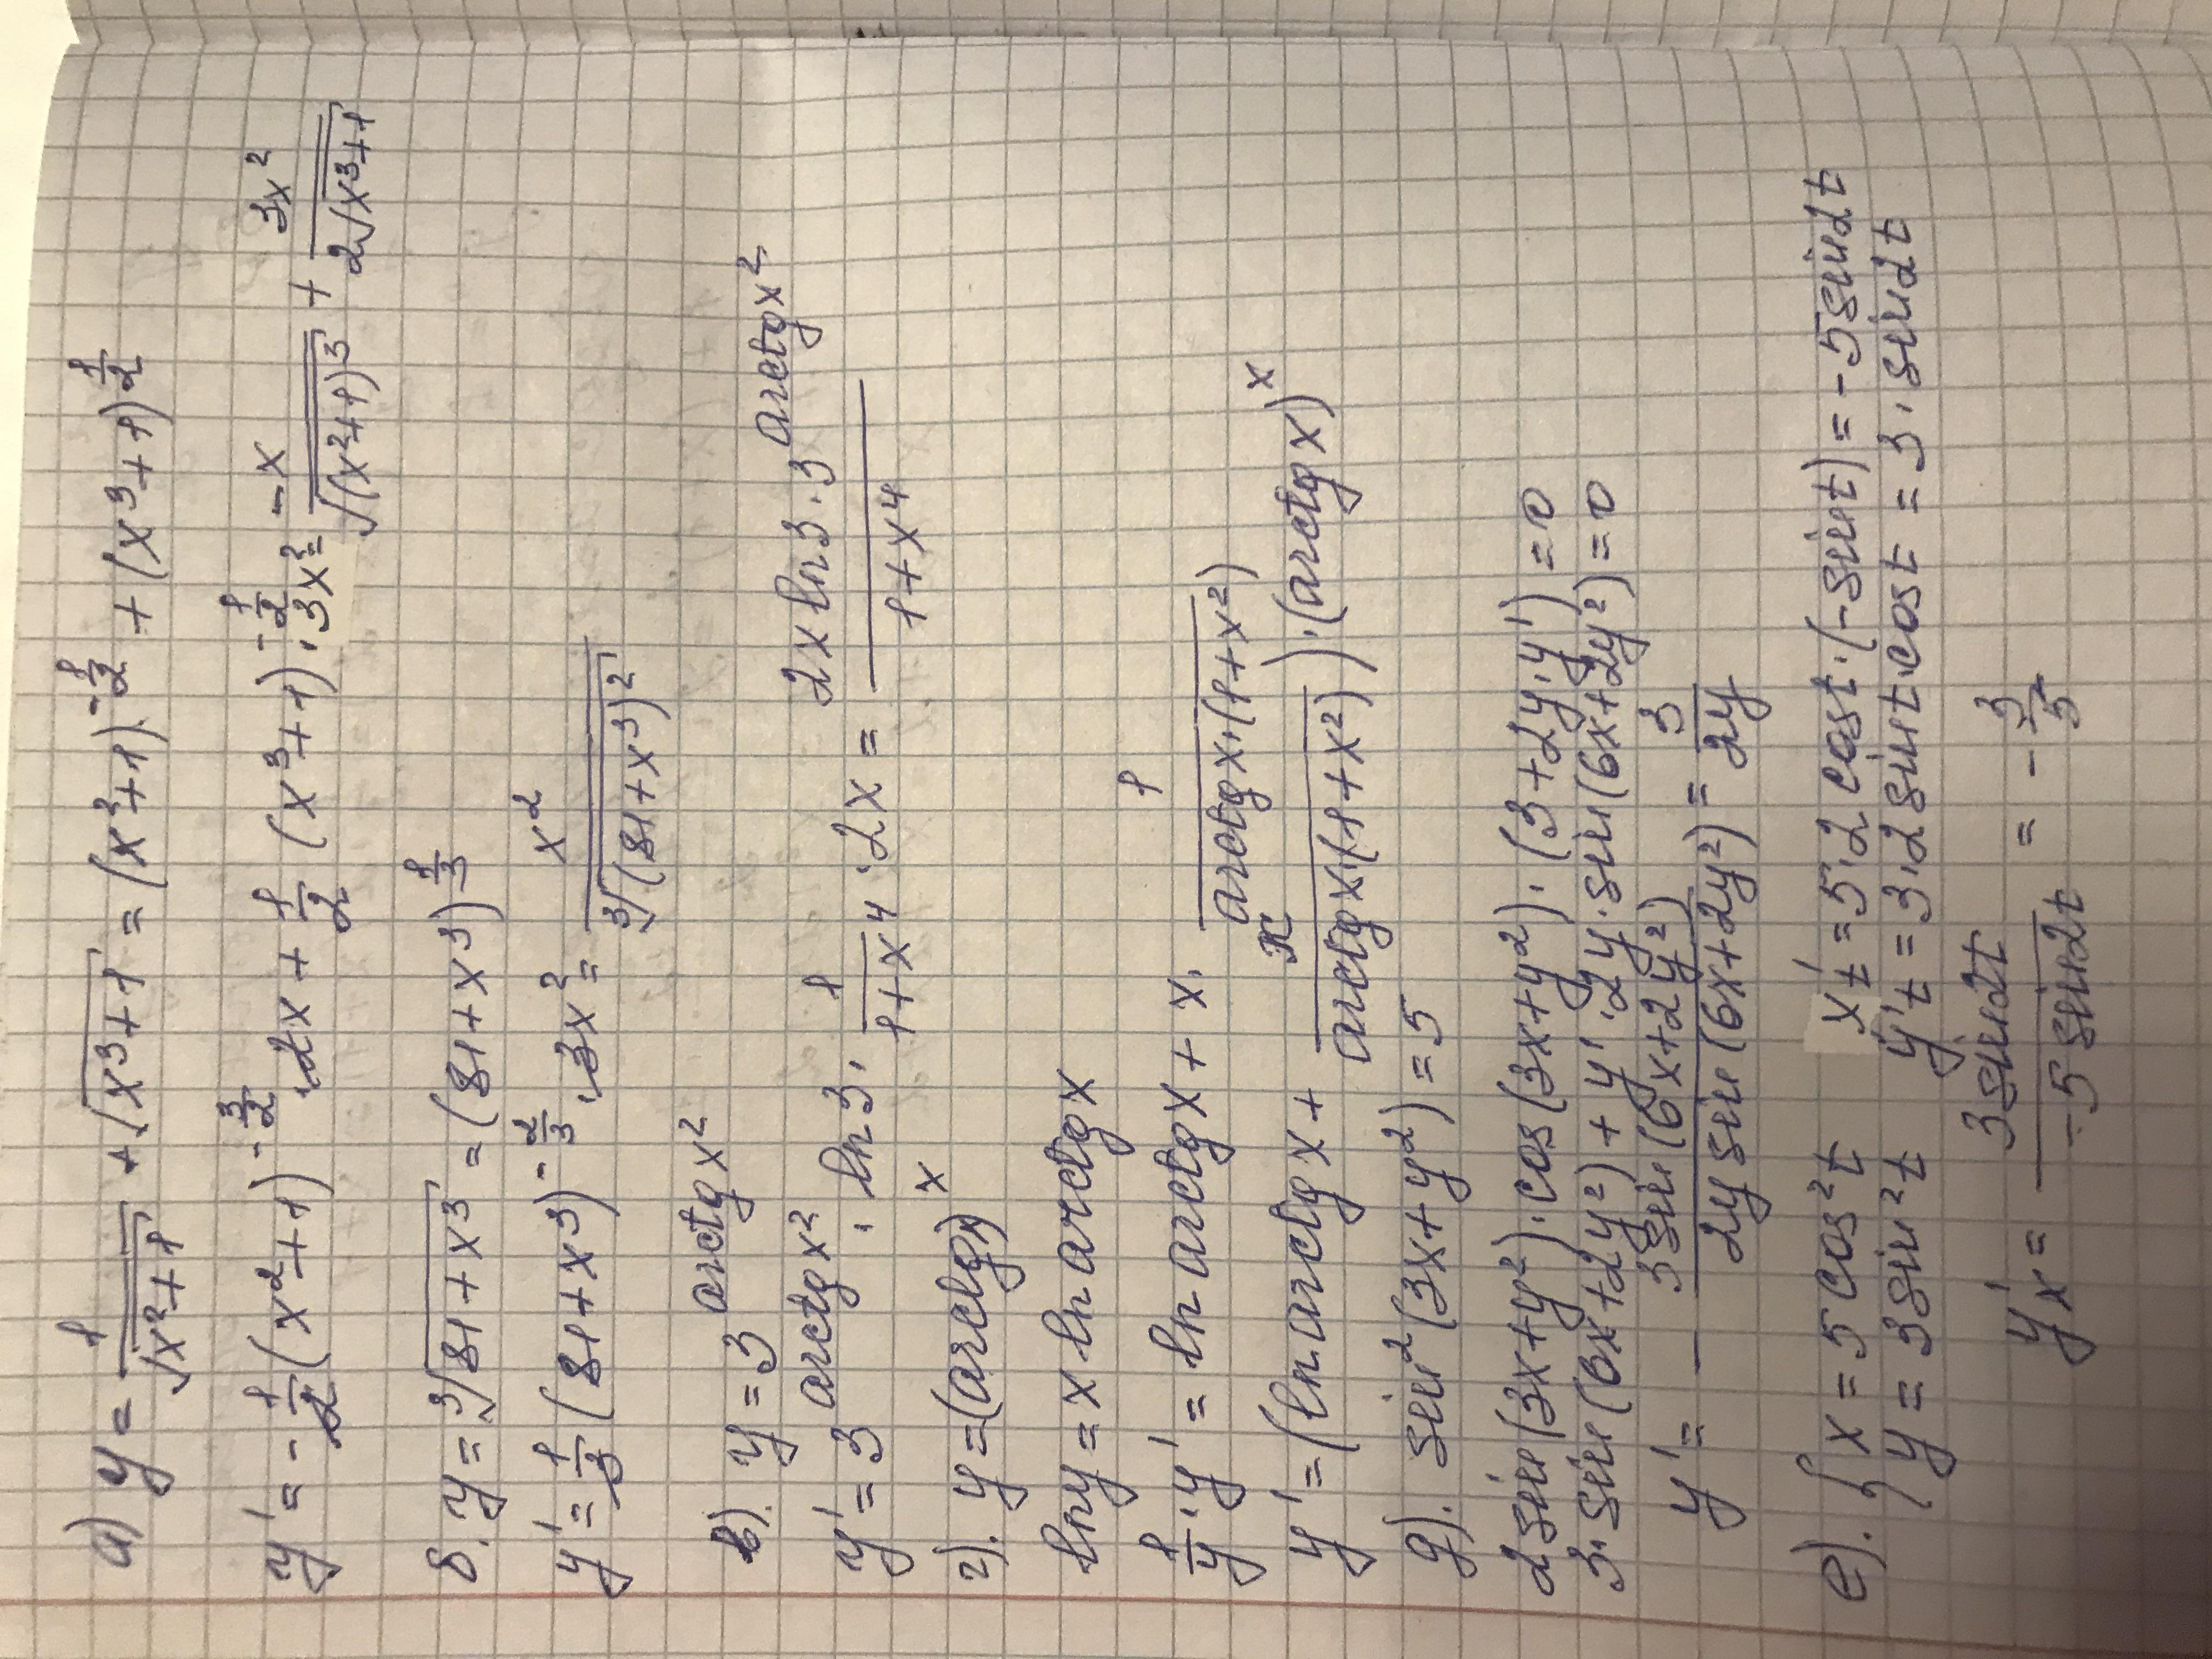 а) y = 1/√(x²+1) + √(x³+1) = (x²+1)^(-1/2) + (x³+1)^(1/2)
y' = -1/2 (x²+1)^(-3/2) · 2x + 1/2 (x³+1)^(-1/2) · 3x² = -x/√((x²+1)³) + 3x²/(2√(x³+1))
б. y = ³√(81+x³) = (81+x³)^(1/3)
y' = 1/3 (81+x³)^(-2/3) · 3x² = x²/³√((81+x³)²)
в). y = 3^(arctgx²)
y' = 3^(arctgx²) · ln3 · 1/(1+x⁴) · 2x = (2x ln3 · 3^(arctgx²))/(1+x⁴)
г). y = (arctgx)^x
lny = x ln arctgx
1/y · y' = ln arctgx + x · 1/(arctgx·(1+x²))
y' = (ln arctgx + x/(arctgx·(1+x²))) · (arctgx)^x
g). sin²(3x+y²) = 5
2sin(3x+y²)·cos(3x+y²)·(3+2y·y') = 0
3·sin(6x+2y²) + y'·2y·sin(6x+2y²) = 0
y' = - 3sin(6x+2y²)/(2y sin(6x+2y²)) = 3/(2y)
е). { x = 5cos²t x't = 5·2cost·(-sint) = -5sin2t
y = 3sin²t y't = 3·2sint·cost = 3·sin2t
y'x = 3sin2t/(-5sin2t) = -3/5